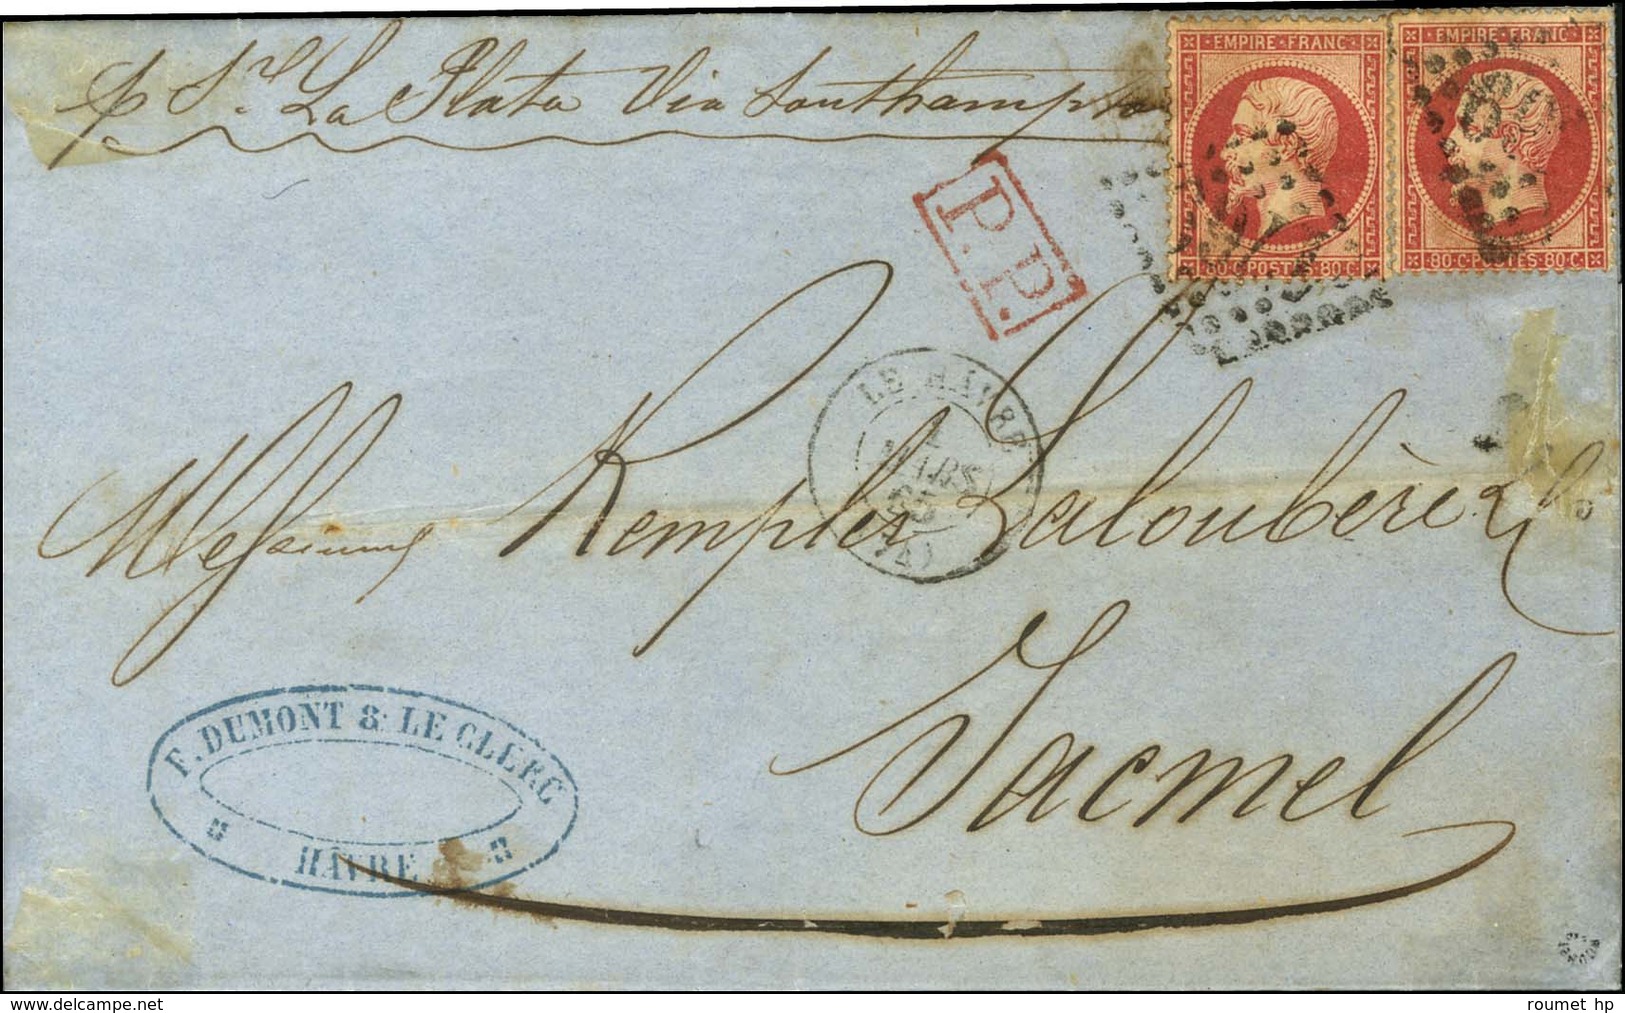 p Sr. La Plata Via Southampton
EMPIRE FRANC
80 C POSTES 80 C
EMPIRE FRANC
80 C POSTES 80 C.
P.P.
LE HÂVRE
1
MARS
(74)
Messieurs Kemples Laloubère & Co
Jacmel
F. DUMONT & LE CLERC
HÂVRE
delcampe.net
roumet hp